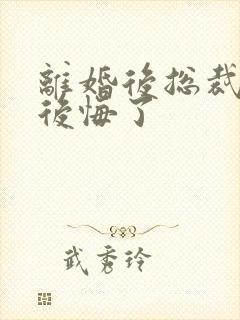 離婚後総裁
後悔了
武秀玲